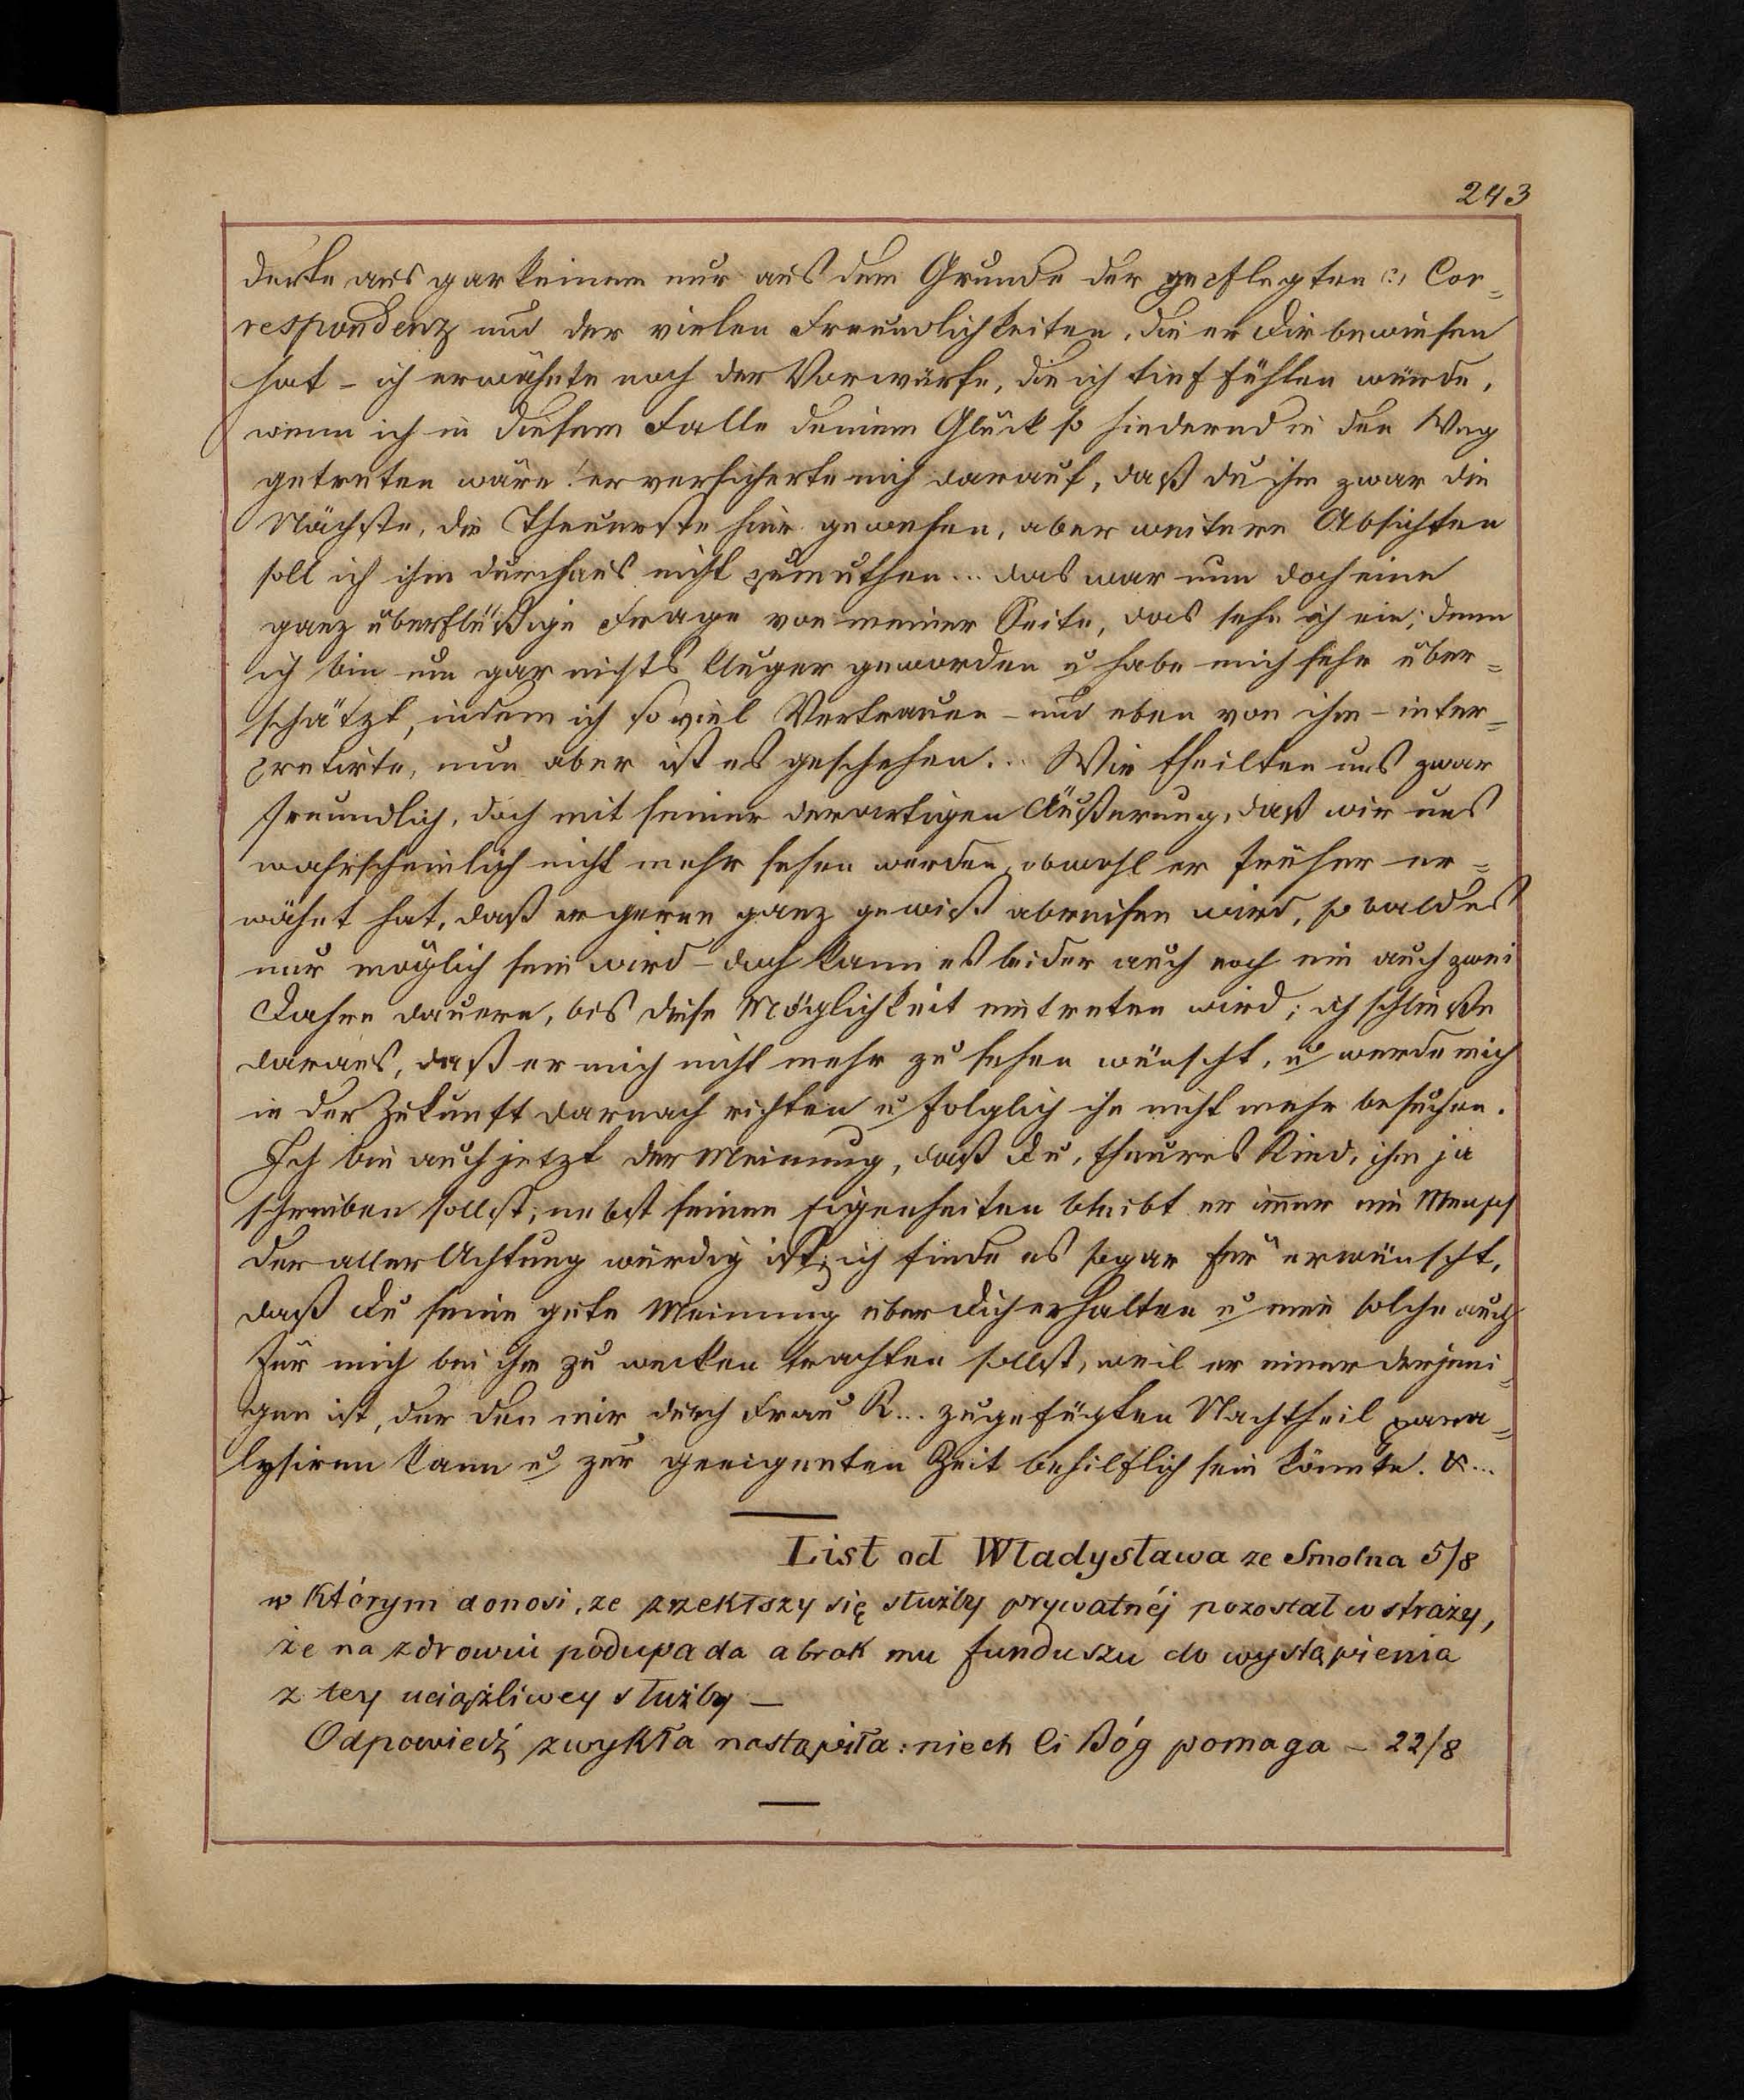 243
derte aus gar keinem nur aus dem Grunde der gepflegten (?) Cor=
respondenz und der vielen Freundlichkeiten, die er dir bewiesen
hat – ich erwähnte noch der Vorwürfe, die ich tief fühlen würde,
wenn ich in diesem Falle deinem Glück so hindernd in den Weg
getreten wäre! er versicherte mich darauf, daß du ihm zwar die
Nächste, die Theuerste hier gewesen, aber weitere Absichten
soll ich ihm durchaus nicht zumuthen... das war nun doch eine
ganz überflüßige Frage von meiner Seite, das sehe ich ein; denn
ich bin um gar nichts kluger geworden u habe mich sehr über=
schätzt, indem ich so viel Vertrauen – und eben von ihm – inter=
pretirte, nun aber ist es geschehen... Wir theilten uns zwar
freundlich, doch mit seiner derartigen Äußerung, daß wir uns
wahrscheinlich nicht mehr sehen werden, obwohl er früher er=
wähnt hat, daß er gerne ganz gewiß abreisen wird, so bald es
nur möglich sein wird – doch kann es leider auch noch ein auch zwei
Jahre dauern, bis diese Möglichkeit eintreten wird; ich schließe
daraus, daß er mich nicht mehr zu sehen wünscht, u werde mich
in der Zukunft darnach richten u folglich ihn nicht mehr besuchen.
Ich bin auch jetzt der Meinung, daß du, theures Kind, ihm ja
schreiben sollst; nebst seinen Eigenheiten bleibt er immer ein Mensch
der aller Achtung würdig ist; ich finde es sogar für erwünscht,
daß du seine gute Meinung über dich erhalten u eine solche auch
für mich bei ihm zu wecken trachten sollst, weil er einer derjeni=
gen ist, der den mir durch Frau K... zugefügten Nachtheil para=
lysiren kann u zur geeigneten Zeit behilflich sein könnte. &...
List od Władysława ze Smolna 5/8
w którym donosi, ze zrzekłszy się służby prywatnéj pozostał w straży,
że na zdrowiu podupada a brak mu funduszu do wystąpienia
z tey uciążliwey służby –
Odpowiedź zwykła nastąpiła: niech Ci Bóg pomaga – 22/8